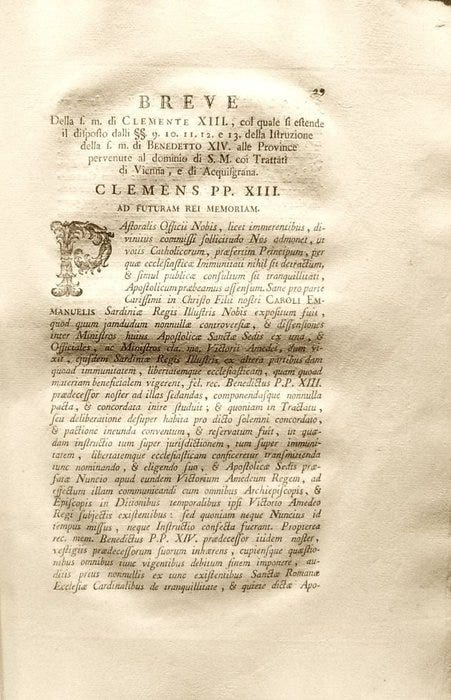 29
BREVE
Della f. m. di CLEMENTE XIII., col quale si estende
il disposto dalli §§ 9. 10. 11. 12. e 13. della Istruzione
della f. m. di BENEDETTO XIV. alle Province
pervenute al dominio di S. M. coi Trattati
di Vienna, e di Acquisgrana.
CLEMENS PP. XIII.
AD FUTURAM REI MEMORIAM.
PAstoralis Officii Nobis, licet immerentibus, di-
vinitus commissi sollicitudo Nos admonet, ut
votis Catholicorum, præsertim Principum, per
quæ ecclesiasticæ Immunitati nihil sit detractum,
& simul publicæ consultum sit tranquillitati,
Apostolicum præbeamus assensum. Sane pro parte
Carissimi in Christo Filii nostri CAROLI EM-
MANUELIS Sardiniæ Regis Illustris Nobis expositum fuit,
quod quum jamdudum nonnullæ controversiæ, & dissensiones
inter Ministros huius Apostolicæ Sanctæ Sedis ex una, &
Officiales, ac Ministros cla. me. Victorii Amedei, dum vi-
xit, ejusdem Sardiniæ Regis Illustris ex altera partibus tam
quoad immunitatem, libertatemque ecclesiasticam, quam quoad
materiam beneficialem vigerent, fel. rec. Benedictus P.P. XIII.
prædecessor noster ad illas sedandas, componendasque nonnulla
pacta, & concordata inire studuit; & quoniam in Tractatu,
seu deliberatione desuper habita pro dicto solemni concordato,
& pactione ineunda conventum, & reservatum fuit, ut quæ-
dam instructio tum super jurisdictionem, tum super immuni-
tatem, libertatemque ecclesiasticam conficeretur transmittenda
tunc nominando, & eligendo suo, & Apostolicæ Sedis præ-
fatæ Nuncio apud eundem Victorium Amedeum Regem, ad
effectum illam communicandi cum omnibus Archiepiscopis, &
Episcopis in Ditionibus temporalibus ipsi Victorio Amedeo
Regi subjectis existentibus: sed quoniam neque Nuncius id
tempus missus, neque Instructio confecta fuerant. Propterea
rec. mem. Benedictus P.P. XIV. prædecessor itidem noster,
vestigiis prædecessorum suorum inhærens, cupiensque quæstio-
nibus omnibus tunc vigentibus debitum finem imponere, au-
ditis prius nonnullis ex tunc existentibus Sanctæ Romanæ
Ecclesiæ Cardinalibus de tranquillitate, & quiete dictæ Apo-